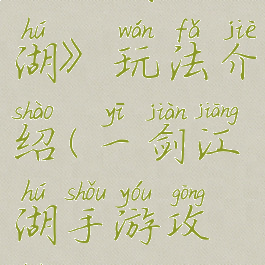 hú wán fǎ jiè
湖》玩法介
shào yī jiàn jiāng
绍(一剑江
hú shǒu yóu gòng
湖手游攻